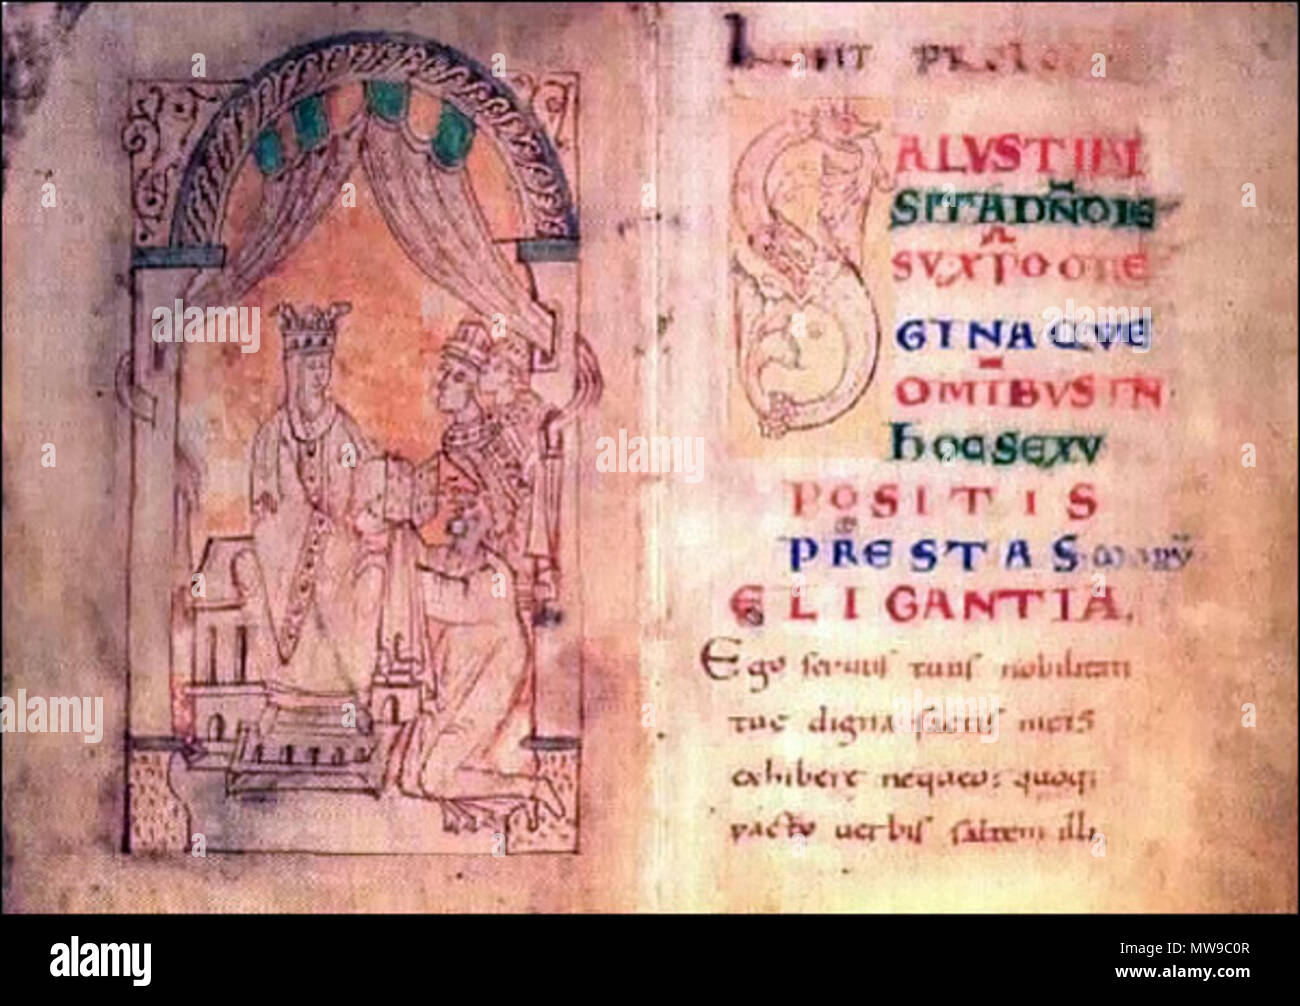 SALVSTIBI
SITADN̄OIE
SVXP̄OORE
GINAQVE
OMĪBVSIN
hOCSEXV
POSITIS
PRESTAS
ELIGANTIA.
Ego seruus tuus nobilitati
tuę digna factis meis
exhibere nequeo: quoq;
pacto uerbis saltem illi
alamy
alamy
alamy
alamy
alamy stock photo
MW9C0R
www.alamy.com